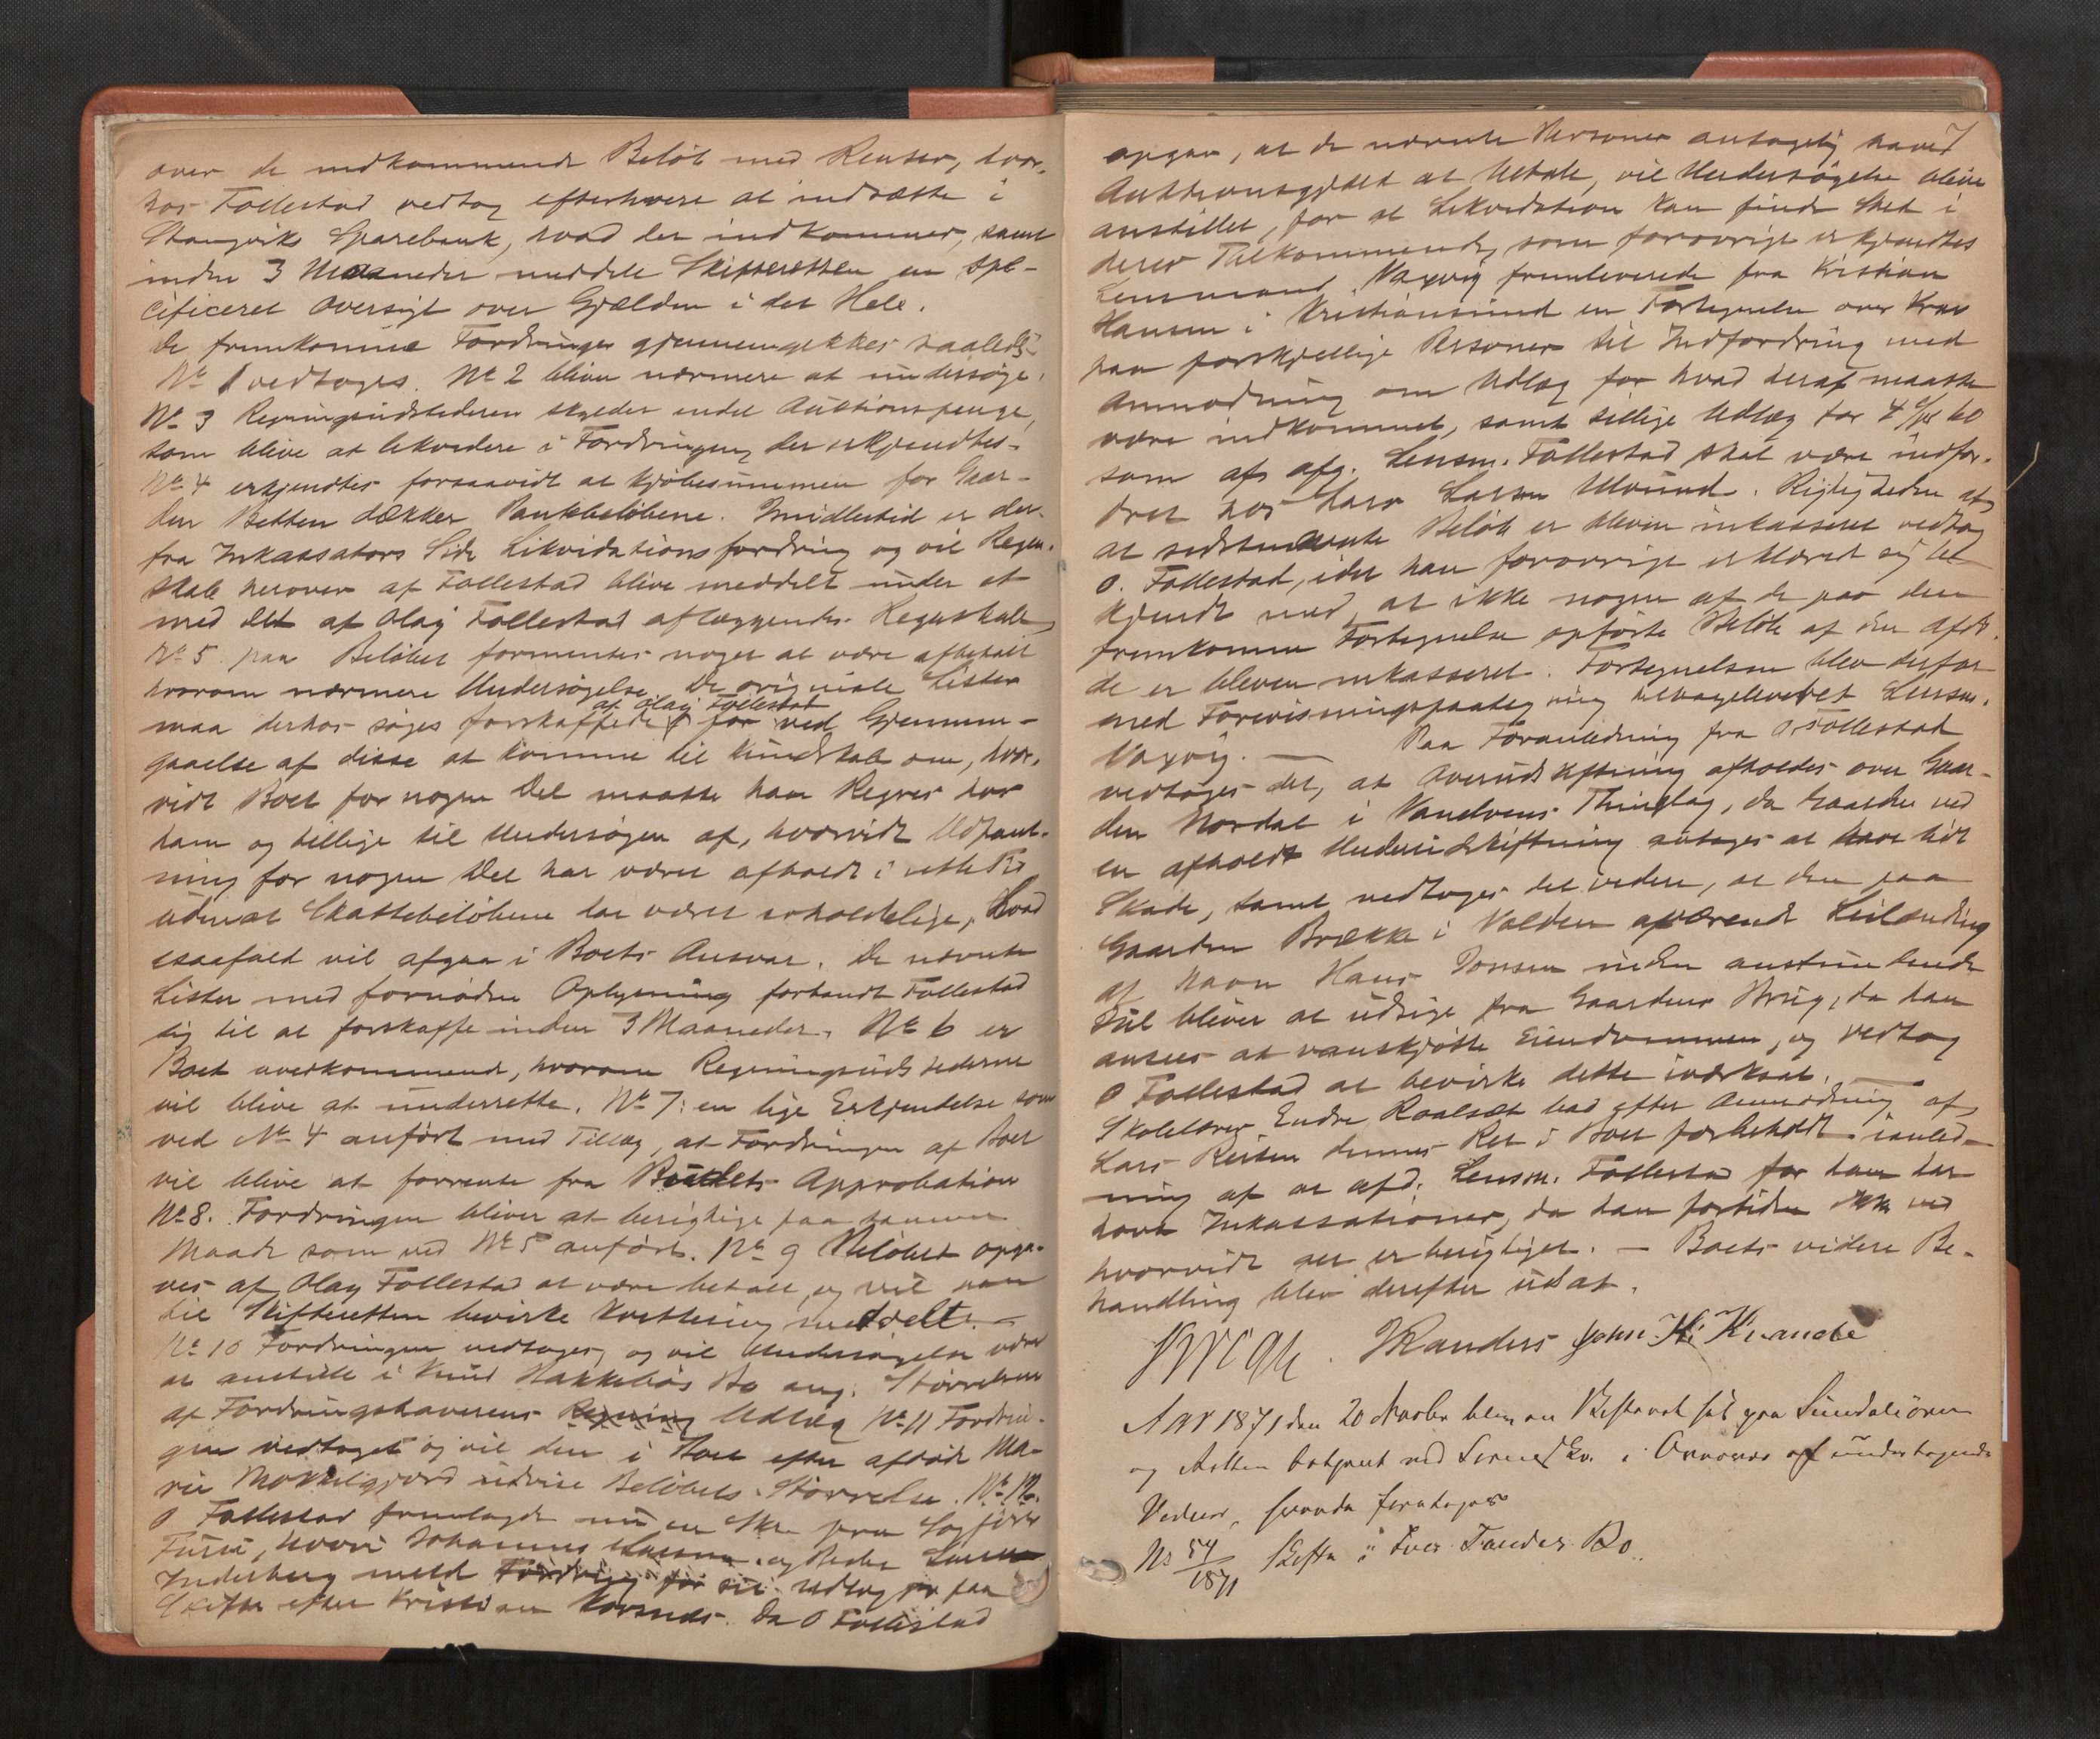 over de indkommende Beløb med Renter, hvor-
hos Follestad vedtog efterhvert at indsætte i
Stangviks Sparebank, hvad der indkommer, samt
inden 3 Maaneder meddele Skifteretten en spe-
cificeret Oversigt over Gjælden i det Hele.
De fremkomne Fordringer gjennemgikkes saaledes
No 1 vedtoges. No 2 bliver nærmere at undersøge.
No 3 Regningsudstederen skylder endel Auktionspenge,
som blive at likvidere i Fordringen, der erkjendtes.
No 4 erkjendtes forsaavidt at Kjøbesummen for Gaar-
den Betten dækker Pantbeløbene. Imidlertid er der
fra Inkassators Side Likvidationsfordring og vil Regn-
skab herover af Follestad blive meddelt under et
med det af Olag Follestad aflæggendes Regnskab,
No 5. paa Beløbet formentes noget at være afbetalt
hvorom nærmere Undersøgelse. De originale Lister
af Olag Follestad
maa derhos søges forskaffede for ved Gjennem-
gaaelse af disse at komme til Kundskab om, hvor-
vidt Boet for nogen Del maatte have Regres hos
ham og tillige til Undersøgen af, hvorvidt Udpant-
ning for nogen Del har været afholdt i rette Tid
uden at Skattebeløbene har været erholdelige, hvad
isaafald vil afgaa i Boets Ansvar. De nævnte
Lister med fornøden Oplysning forbandt Follestad
sig til at forskaffe inden 3 Maaneder. No 6 er
Boet uvedkommende, hvorom Regningsudstederne
vil blive at underrette. No 7: en lige Erkjendelse som
ved No 4 anført med Tillæg, at Fordringen af Boet
vil blive at forrente fra Budets Approbation
No 8. Fordringen bliver at berigtige paa samme
Maade som ved No 5 anført. No 9 Beløbet opga-
ves af Olag Follestad at være betalt, og vil han
til Skifteretten bevirke Kvittering meddelt. –
No 10 Fordringen vedtoges, og vil Undersøgelse være
at anstille i Knud Hakkebøs Bo ang. Størrelsen
af Fordringshaverens Regning Udlæg No 11 Fordrin-
gen vedtoges og vil den i Boet efter afdøde Ma-
rie udvise Beløbets Størrelse. No 12.
O Follestad fremlagde nu en Skr. fra Sagfører
Furu, hvori Johannes Larsen og Peder Larsen
Inderberg meld Fordring for sit Udlæg paa
Skifte efter Kristian. Da O Follestad
7
opgav, at de nævnte Personer antagelig havd
Auktionsgjæld at betale, vil Undersøgelse blive
anstillet, før at Likvidation kan finde Sted i
deres Tilkommende, som forøvrigt erkjendtes
Lensmand Vaxvig fremleverede fra Kristian
Hansen i Kristiansund en Fortegnelse over Krav
paa forskjellige Personer til Indfordring med
Anmodning om Udlæg for hvad deraf maatte
være indkommet, samt tillige Udlæg for 4 60
som af afg. Lensm. Follestad skal være indfor-
dret hos Lars Larsen Ulvund. Rigtigheden af
at sidstnævnte Beløb er bleven inkasseret vedtog
O. Follestad, idet han forøvrigt erklæred sig be-
kjendt med, at ikke nogen af de paa den
fremkomne Fortegnelse opførte Beløb af den afdø-
de er bleven inkasseret. Fortegnelsen blev derfor
med Forevisningspaategning tilbageleveret Lensm.
Vaxvig. — Paa Foranledning fra O Follestad
vedtoges det, at Overudskiftning afholdes over Gaar-
den Nordal i Vanelvens Thinglag, da Gaarden ved
en afholdt Underudskiftning antages at have lidt
Skade, samt vedtoges det videre, at den paa
Gaarden Brække i Volden værende Leilænding
af Navn Hans Jonsen inden anstundende
Jul bliver at udsige fra Gaardens Brug, da han
ansees at vanskjøtte Eiendommen, og vedtog
O Follestad at bevirke dette iværksat.
Skolelærer Endre Raalsæt bad efter Anmodning af
Lars Reiten dennes Ret i Boet forbeholdt i anled-
ning af at afd. Lensm. Follestad for ham har
havt Inkassationer, da han fortiden ikke ved
hvorvidt det er berigtiget. — Boets videre Be-
handling blev derefter udsat.
Randers John K. Kvande
Aar 1871 den 20 blev en Skifteret sat paa Sundalsøren
og Retten betjent ved i Overvær af undertegnede
Vidner, hvorda foretoges
No 54/1871 Skifte i Iver Bo.